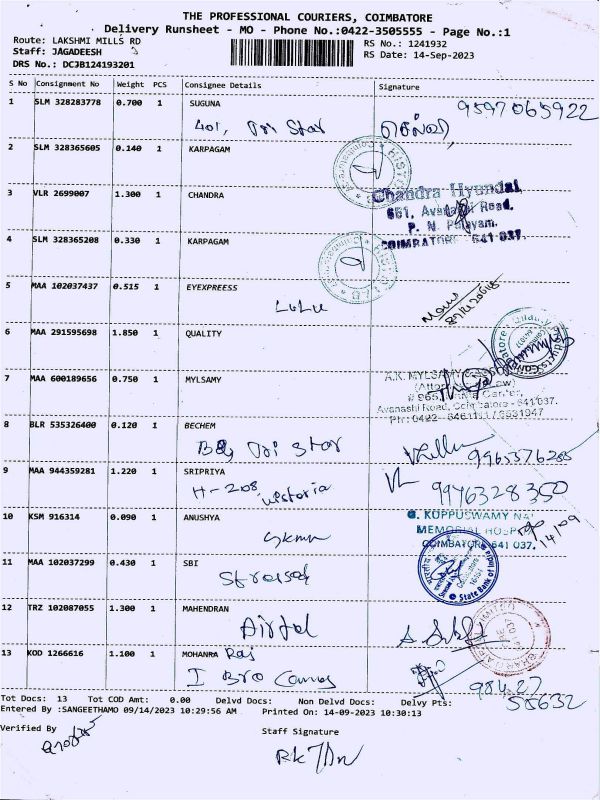 THE PROFESSIONAL COURIERS, COIMBATORE
Delivery Runsheet - MO - Phone No.:0422-3505555 - Page No.:1
Route: LAKSHMI MILLS RD
RS No.: 1241932
Staff: JAGADEESH
RS Date: 14-Sep-2023
DRS No.: DCJB124193201
S No Consignment No Weight PCS Consignee Details Signature
1 SLM 328283778 0.700 1 SUGUNA 9597065922
401, Tri Star செல்வி
2 SLM 328365605 0.140 1 KARPAGAM
3 VLR 2699007 1.300 1 CHANDRA
Chandra Hyundai,
661, Avanashi Road,
P. N. Palayam,
COIMBATORE 641 037.
4 SLM 328365208 0.330 1 KARPAGAM
5 MAA 102037437 0.515 1 EYEXPREESS
LuLu
6 MAA 291595698 1.850 1 QUALITY
7 MAA 600189656 0.750 1 MYLSAMY
A.K. MYLSAMY
Avanashi Road, Coimbatore - 641 037.
8 BLR 535326400 0.120 1 BECHEM
Tri Star
9 MAA 944359281 1.220 1 SRIPRIYA
H-208, 9946328350
10 KSM 916314 0.090 1 ANUSHYA
G. KUPPUSWAMY
MEMORIAL HOSPITAL
COIMBATORE 641 037.
14/09
11 MAA 102037299 0.430 1 SBI
State Bank of
12 TRZ 102087055 1.300 1 MAHENDRAN
Airtel
13 KOD 1266616 1.100 1 MOHANRA Raj
I Bro
98427
55632
Tot Docs: 13 Tot COD Amt: 0.00 Delvd Docs: Non Delvd Docs: Delvy Pts:
Entered By :SANGEETHAMO 09/14/2023 10:29:56 AM Printed On: 14-09-2023 10:30:13
Verified By
Staff Signature